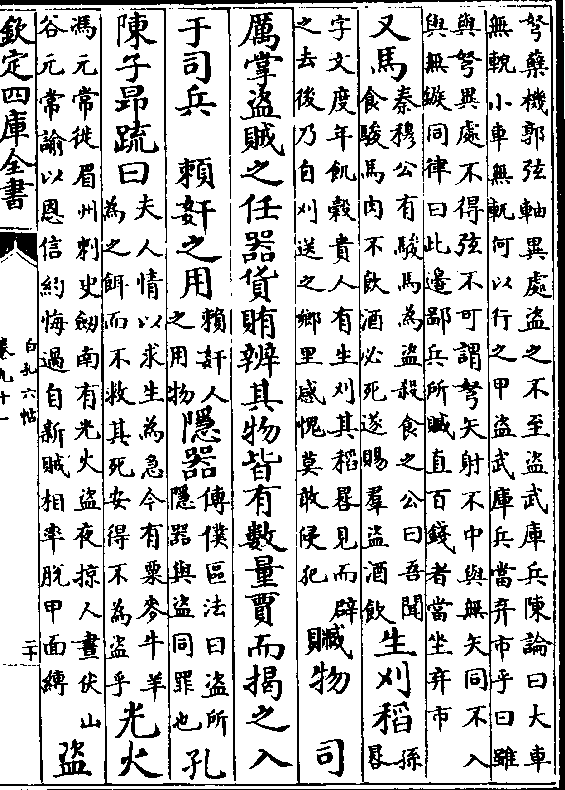 弩蘖機郭弦軸異處盜之不至盜武庫兵陳論曰大車
無輗小車無軏何以行之甲盜武庫兵當弃市乎曰雖
與弩異處不得弦不可謂弩矢射不中與無矢同不入
與無鏃同律曰此邊鄙兵所贓直百錢者當坐弃市
又馬
秦穆公有駿馬為盜殺食之公曰吾聞
食駿馬肉不飲酒必死遂賜羣盜酒飲
生刈稻
孫
晷
字文度年飢穀貴人有生刈其稻晷見而辟
之去後乃自刈送之鄉里感愧莫敢侵犯
贓物 司
厲掌盜賊之任器貨賄辨其物皆有數量賈而揭之入
于司兵 賴姧之用
賴姧人
之用物
隱器
傳僕區法曰盜所
隱器與盜同罪也
孔
陳子昂疏曰
夫人情以求生為急今有粟麥牛羊
為之餌而不救其死安得不為盜乎
光火
馮元常徙眉州刺史劒南有光火盜夜掠人晝伏山
谷元常諭以恩信約悔過自新賊相率脱甲面縛
盜
欽定四庫全書
白孔六帖
卷九十一
二十